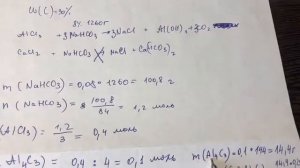 ω(C) = 90%
8% 1260г
AlCl₃ + 3NaHCO₃ → 3NaCl + Al(OH)₃ + 3CO₂
CaCl₂ + NaHCO₃ NaCl + Ca(HCO₃)₂
m(NaHCO₃) = 0,08 · 1260 = 100,8 г
n(NaHCO₃) = 100,8 / 84 = 1,2 моль
(AlCl₃) = 1,2 / 3 = 0,4 моль
Al₄C₃ = 0,4 : 4 = 0,1 моль m(Al₄C₃) = 0,1 · 144 = 14,4г